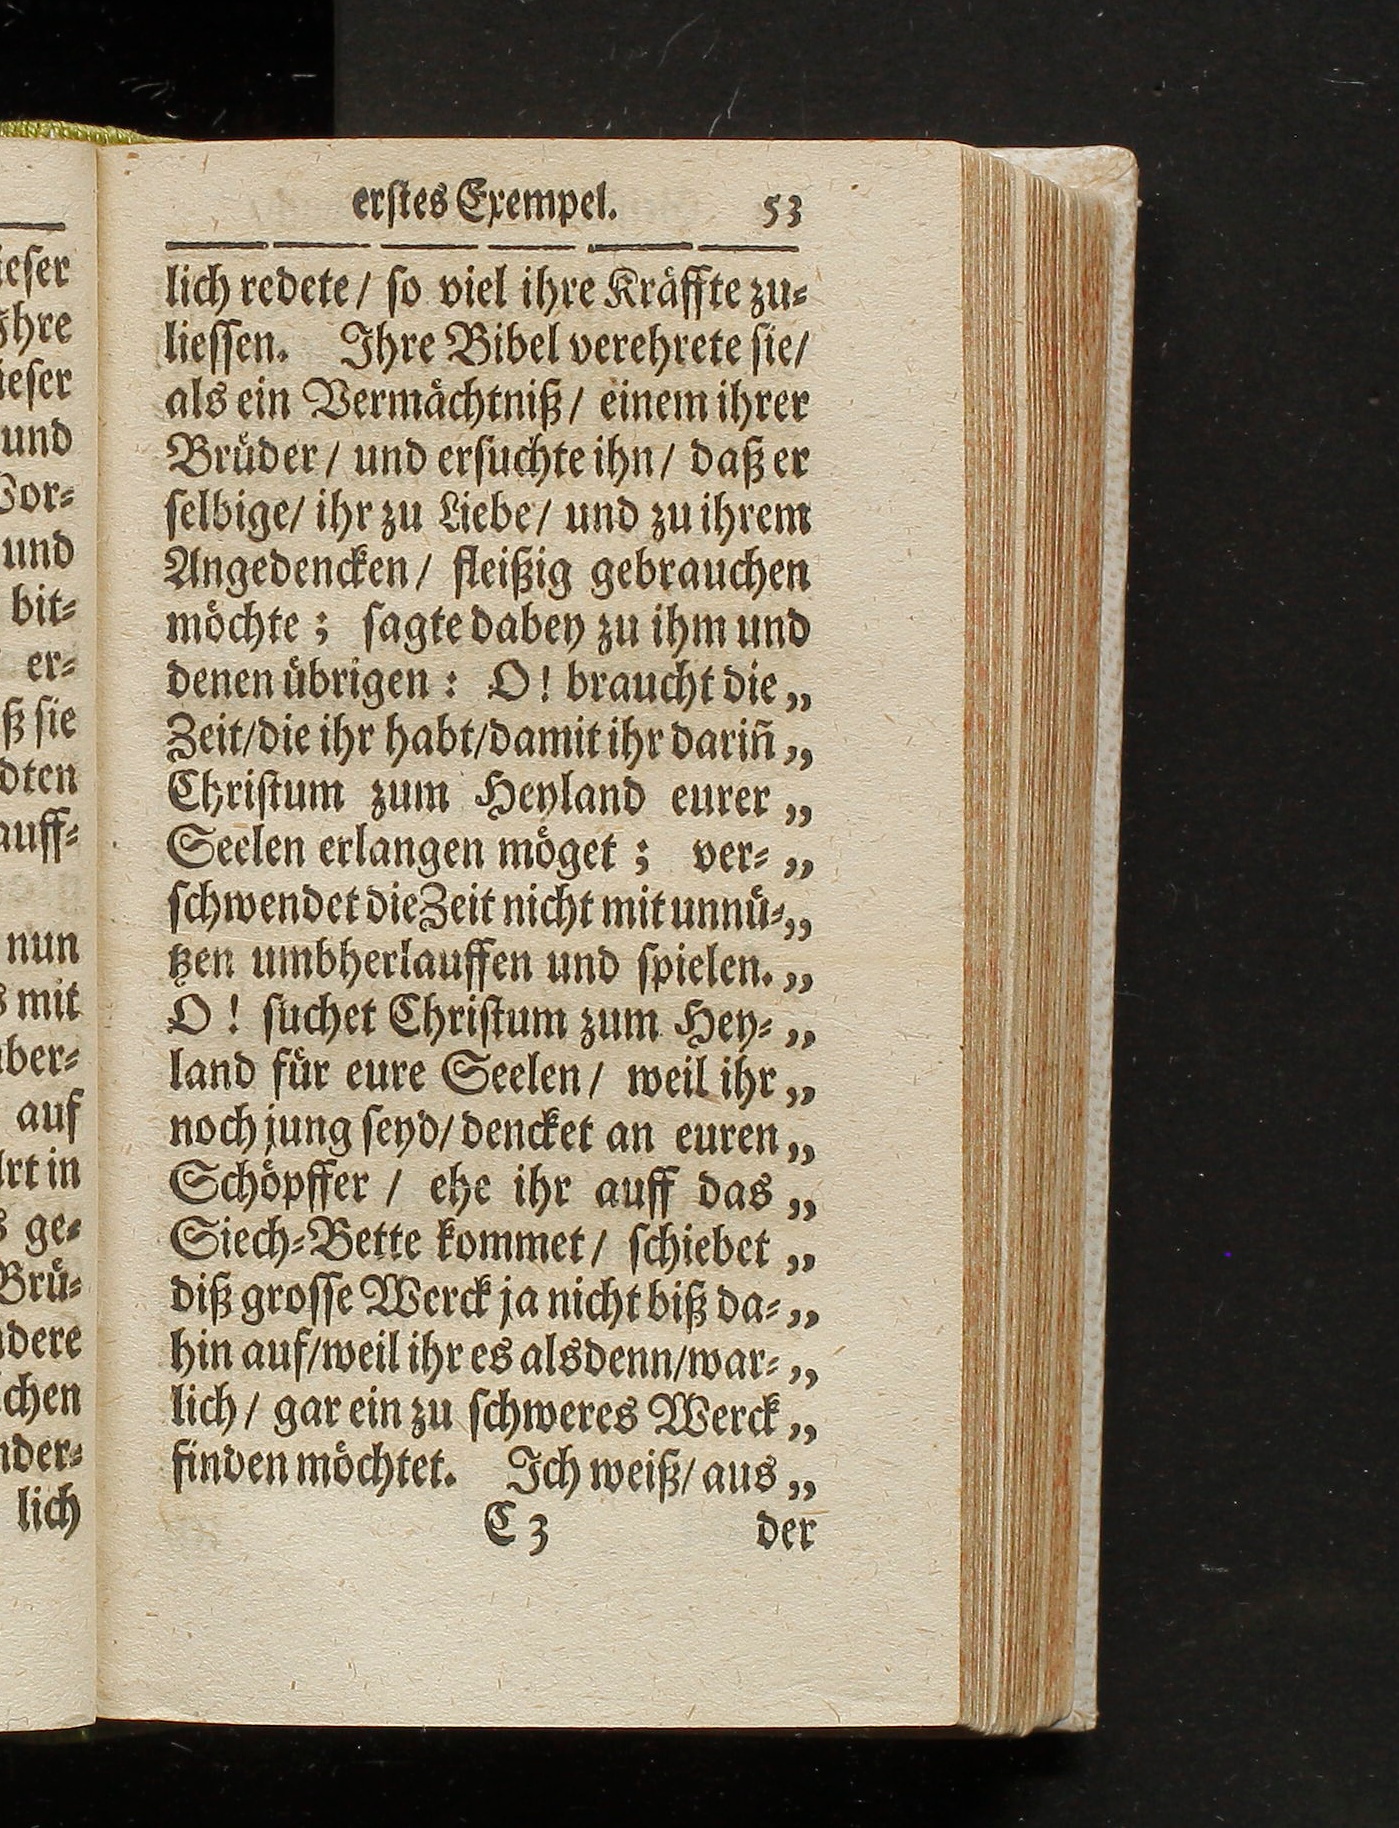 erſtes Exempel. 53
lich redete / ſo viel ihre Kräffte zu-
lieſſen. Ihre Bibel verehrete ſie/
als ein Vermächtniß / einem ihrer
Brüder / und erſuchte ihn / daß er
ſelbige/ ihr zu Liebe / und zu ihrem
Angedencken / fleißig gebrauchen
möchte ; ſagte dabey zu ihm und
denen übrigen : O! braucht die „
Zeit/die ihr habt/damit ihr dariñ „
Chriſtum zum Heyland eurer „
Seelen erlangen möget ; ver- „
ſchwendet die Zeit nicht mit unnü- „
tzen umbherlauffen und ſpielen. „
O ! ſuchet Chriſtum zum Hey- „
land für eure Seelen / weil ihr „
noch jung ſeyd/ dencket an euren „
Schöpffer / ehe ihr auff das „
Siech-Bette kommet / ſchiebet „
diß groſſe Werck ja nicht biß da- „
hin auf/weil ihr es alsdenn/war- „
lich / gar ein zu ſchweres Werck „
finden möchtet. Ich weiß/ aus „
C 3 der
ieſer
Ihre
ieſer
und
Vor-
und
bit-
er-
ß ſie
dten
auff-
nun
s mit
über-
auf
Art in
s ge-
Brü-
ndere
ichen
nder-
lich